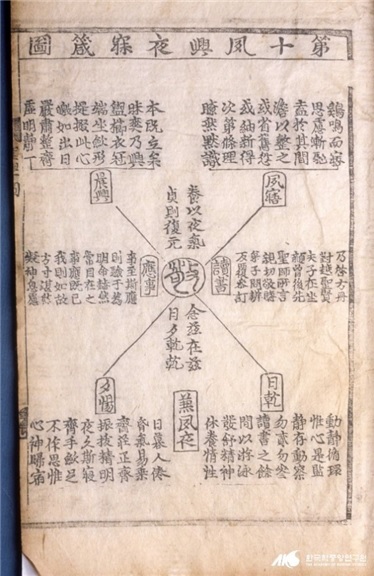 第十夙興夜寐箴圖
夙寤
鷄鳴而寤
思慮漸馳
盍於其間
澹以整之
或省舊愆
或紬新得
次第條理
瞭然默識
晨興
本旣立矣
昧爽乃興
盥櫛衣冠
端坐斂形
提掇此心
皦如出日
嚴肅整齊
虛明靜一
養以夜氣
貞則復元
敬
讀書
乃啓方冊
對越聖賢
夫子在坐
顔曾後先
聖師所言
親切敬聽
弟子問辨
反覆參訂
應事
事至斯應
則驗于爲
明命赫然
常目在之
事應旣已
我則如故
方寸湛然
凝神息慮
念玆在玆
日夕乾乾
日乾
動靜循環
惟心是監
靜存動察
勿貳勿參
讀書之餘
間以游泳
發舒精神
休養情性
兼夙夜
夕惕
日暮人倦
昏氣易乘
齋莊正齊
振拔精明
夜久斯寢
齊手斂足
不作思惟
心神歸宿
한국학중앙연구원